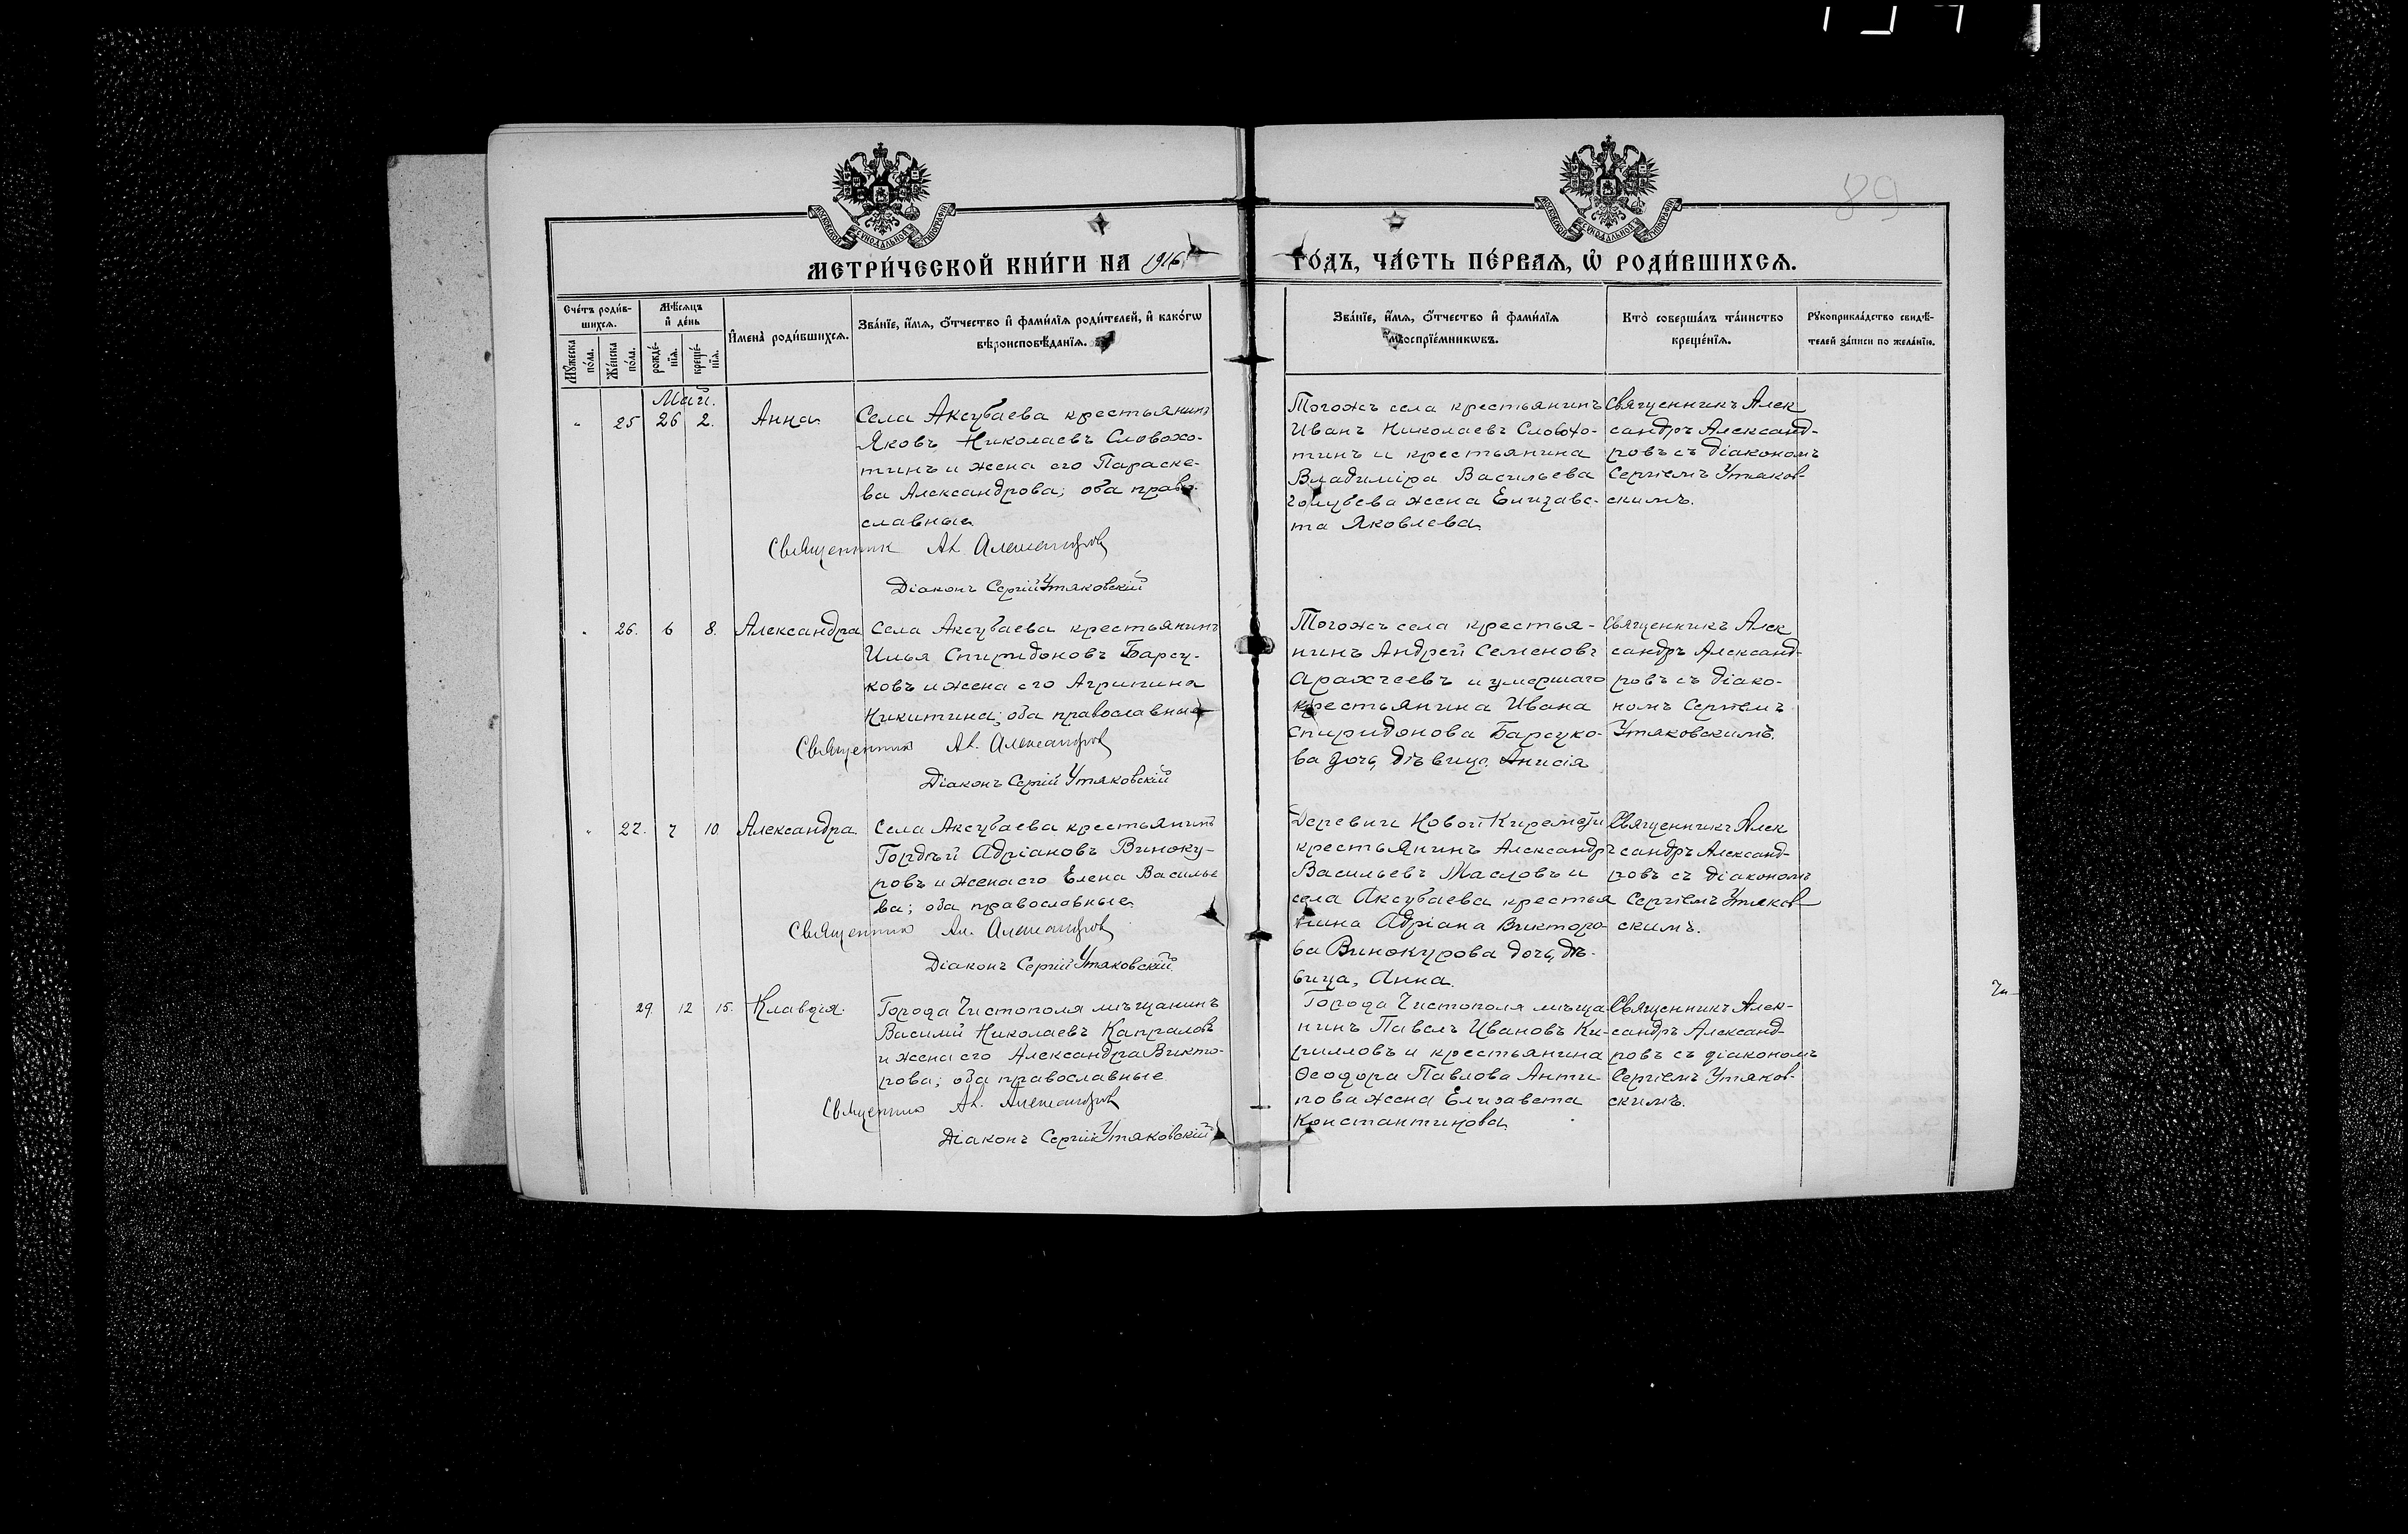 89
МЕТРИ́ЧЕСКОЙ КНИ́ГИ НА 1916 ГО́ДЪ, ЧА́СТЬ ПЕ́РВАЯ, Ѿ РОДИ́ВШИХСЯ.
Сче́тъ роди́в-
шихся.
Мꙋ́жеска
по́ла.
Же́нска
по́ла.
Мѣ́сяцъ
и҆ де́нь
рожде́-
нїя.
креще́-
нїя.
И҆мена̀ роди́вшихся.
Зва́нїе, и҆́мя, ѻ҆́тчество и҆ фами́лїя роди́телей, и҆ како́гѡ
вѣроисповѣ́данїя.
Зва́нїе, и҆́мя, ѻ҆́тчество и҆ фами́лїя
воспрїе́мникѡвъ.
Кто̀ соверша́лъ та́инство
креще́нїя.
Рꙋкоприкла́дство свидѣ́-
телей за́писи по жела́нїю.
Май.
" 25 26 2. Анна
Села Аксубаева крестьянинъ
Яковъ Николаевъ Словохо-
тинъ и жена его Параске-
ва Александрова; оба право-
славные
Священник Ал. Александров
Діаконъ Сергій Утяковскій
Тогожъ села крестьянинъ
Иванъ Николаевъ Словохо-
тинъ и крестьянина
Владиміра Васильева
Голубева жена Елизаве-
та Яковлева
Священникъ Алек
сандръ Александ-
ровъ съ діакономъ
Сергіемъ Утяков-
скимъ.
" 26. 6 8. Александра
Села Аксубаева крестьянинъ
Илья Спиридоновъ Барсу-
ковъ и жена его Агрипина
Никитина; оба православные
Священник Ал. Александров
Діаконъ Сергій Утяковскій
Тогожъ села крестья-
нинъ Андрей Семеновъ
Аракчеевъ и умершаго
крестьянина Ивана
Спиридонова Барсуко-
ва дочь, дѣвица Анисія
Священникъ Алек
сандръ Александ-
ровъ съ діако-
номъ Сергіемъ
Утяковскимъ.
" 27. 7 10 Александра
Села Аксубаева крестьянинъ
Гордѣй Адріановъ Виноку-
ровъ и жена его Елена Василье
ва; оба православные
Священник Ал. Александров
Діаконъ Сергій Утяковскій
Деревни Новой Киремети
крестьянинъ Александръ
Васильевъ Масловъ и
села Аксубаева крестья
нина Адріана Викторо-
ва Винокурова дочь, дѣ-
вица, Анна.
Священникъ Алек
сандръ Александ-
ровъ съ діакономъ
Сергіемъ Утяков-
скимъ.
29 12 15. Клавдія.
Города Чистополя мѣщанинъ
Василій Николаевъ Капраловъ
и жена его Александра Викто-
рова; оба православные
Священник Ал. Александров
Діаконъ Сергій Утяковскій
Города Чистополя мѣща
нинъ Павелъ Ивановъ Ки-
рилловъ и крестьянина
Ѳеодора Павлова Анти
пова жена Елизавета
Константинова
Священникъ Алек-
сандръ Александ-
ровъ съ діакономъ
Сергіемъ Утяков-
скимъ.